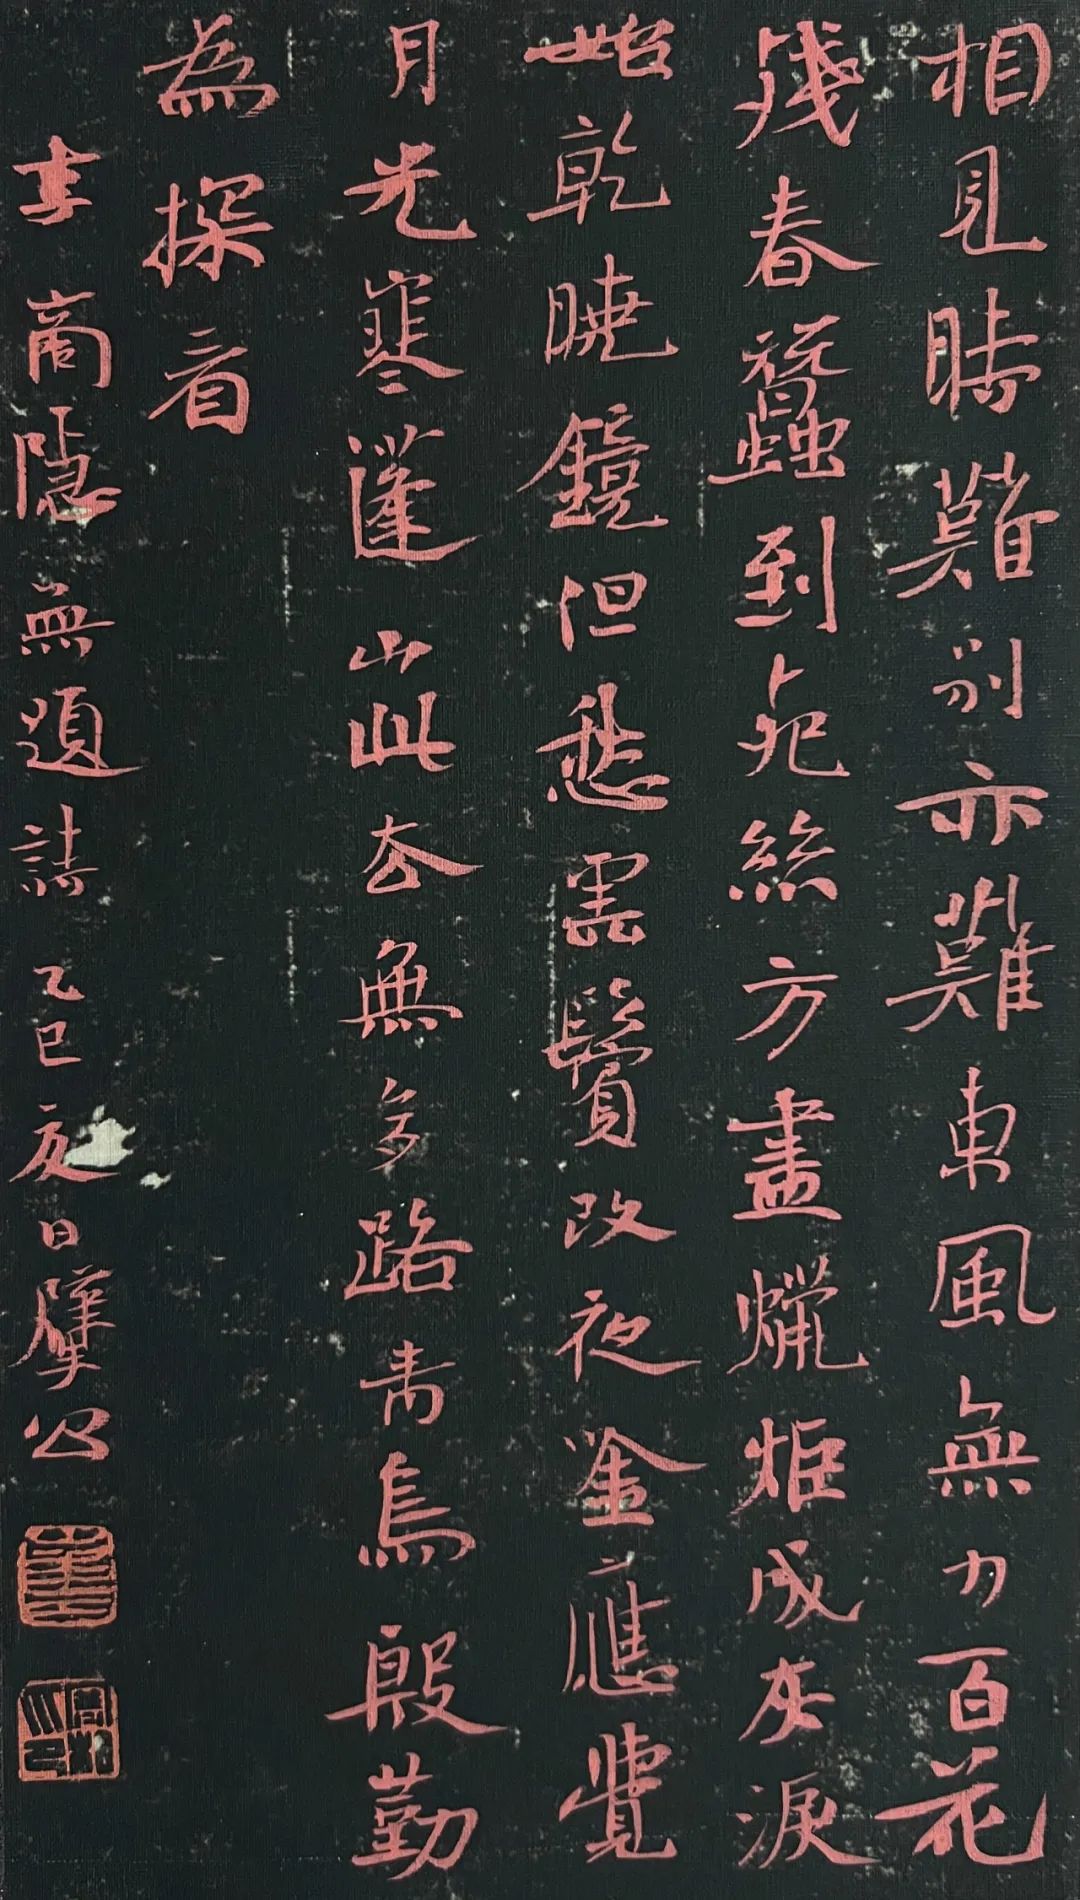 相見時難別亦難東風無力百花
殘春蠶到死絲方盡蠟炬成灰淚
始乾曉鏡但愁雲鬢改夜唫應覺
月光寒蓬山此去無多路青鳥殷勤
為探看
李商隱無題詩乙巳夏日公